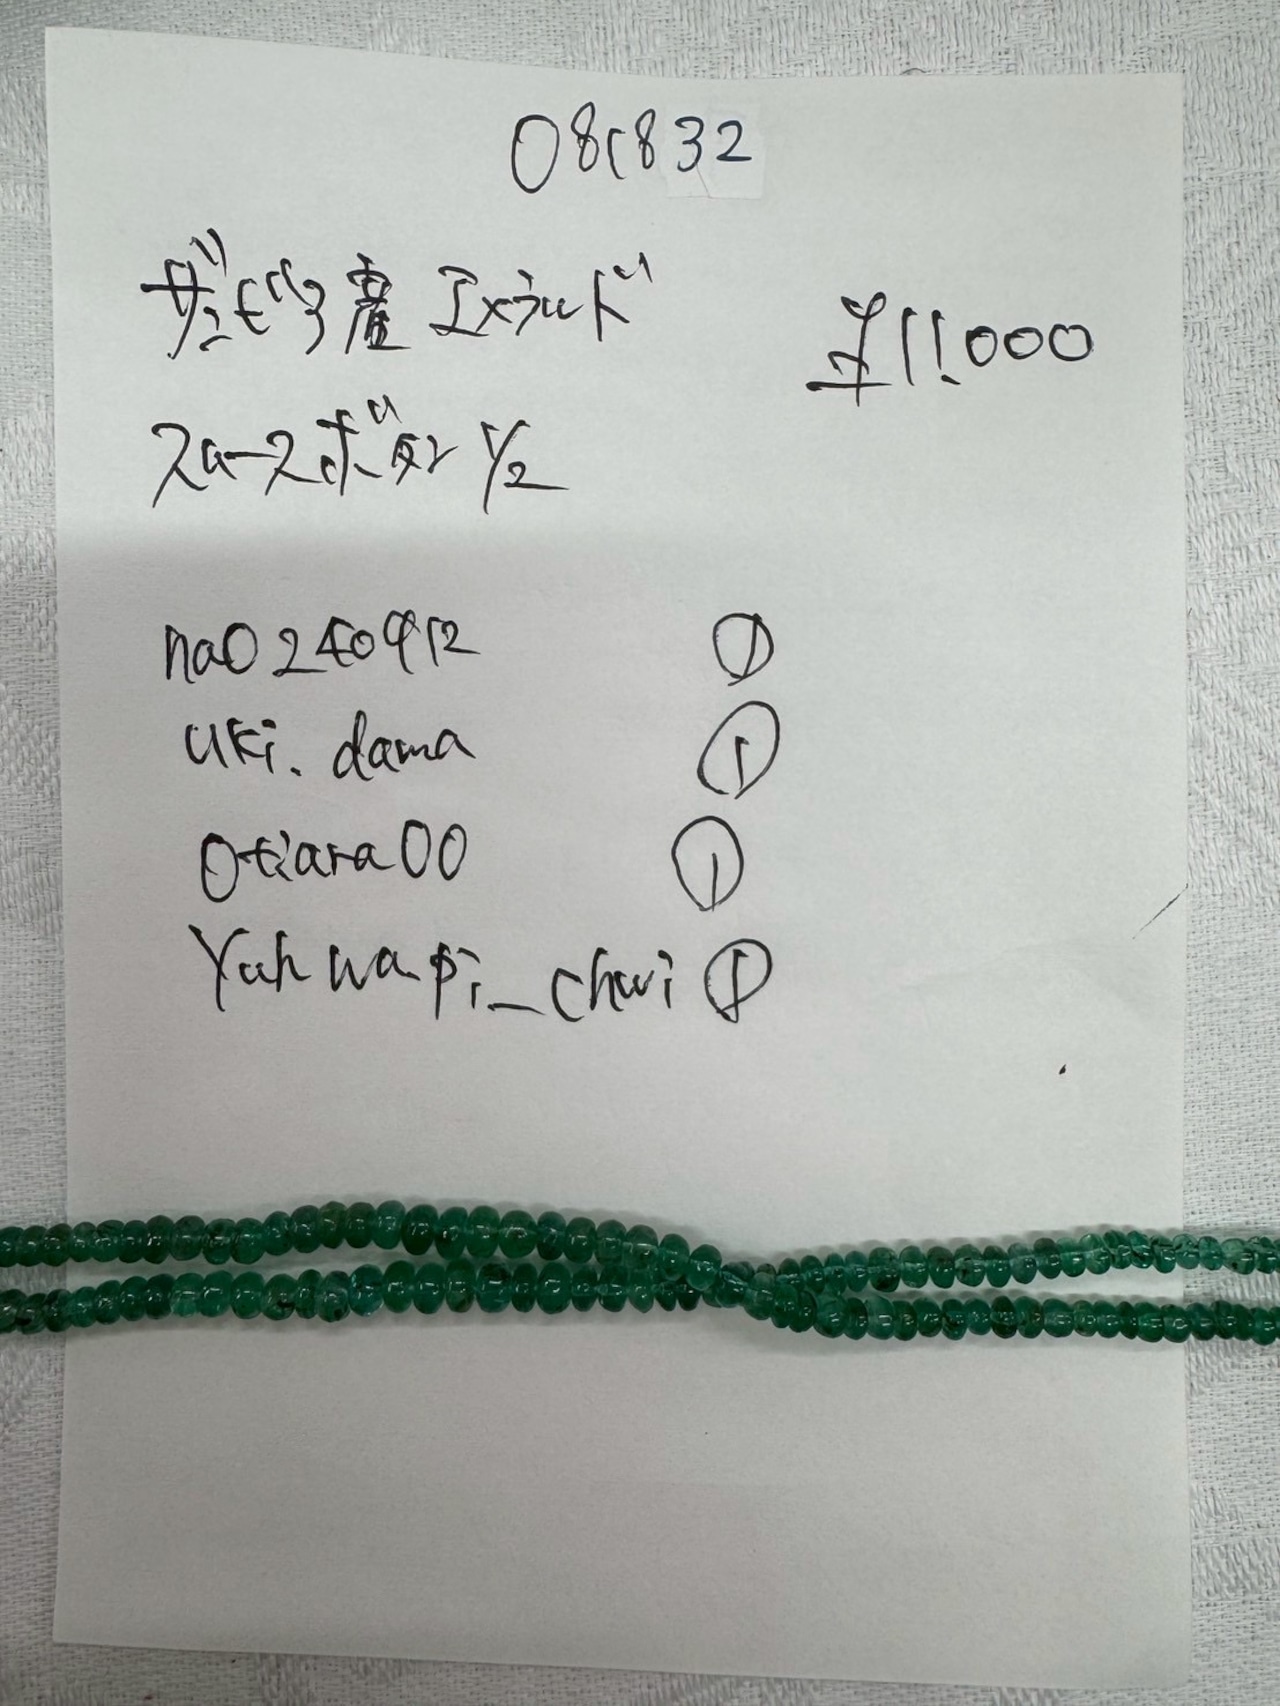 081832
ザンビア産 エメラルド
¥11.000
スムースボタン 1/2
nao240912 ①
uki.dama ①
Otiara00 ①
Yuhwapi_chwi ①